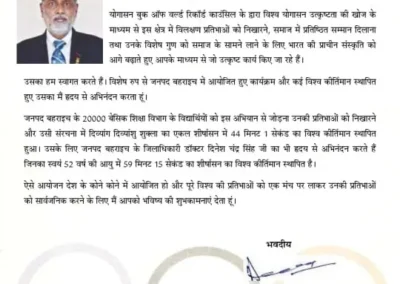 योगासन बुक ऑफ वर्ल्ड रिकॉर्ड काउंसिल के द्वारा विश्व योगासन उत्कृष्टता की खोज के
माध्यम से इस क्षेत्र में विलक्षण प्रतिभाओं को निखारने, समाज में प्रतिष्ठित सम्मान दिलाना
तथा उनके विशेष गुण को समाज के सामने लाने के लिए भारत की प्राचीन संस्कृति को
आगे बढ़ाते हुए आपके माध्यम से जो उत्कृष्ट कार्य किए जा रहे हैं।
उसका हम स्वागत करते हैं। विशेष रुप से जनपद बहराइच में आयोजित हुए कार्यक्रम और कई विश्व कीर्तिमान स्थापित
हुए उसका मैं हृदय से अभिनंदन करता हूं।
जनपद बहराइच के 20000 बेसिक शिक्षा विभाग के विद्यार्थियों को इस अभियान से जोड़ना उनकी प्रतिभाओं को निखारने
और उसी संरचना में दिव्यांग दिव्यांशु शुक्ला का एकल शीर्षासन में 44 मिनट 1 सेकंड का विश्व कीर्तिमान स्थापित
हुआ। उसके लिए जनपद बहराइच के जिलाधिकारी डॉक्टर दिनेश चंद्र सिंह जी का भी हृदय से अभिनंदन करते हैं
जिनका स्वयं 52 वर्ष की आयु में 59 मिनट 15 सेकंड का शीर्षासन का विश्व कीर्तिमान स्थापित है।
ऐसे आयोजन देश के कोने कोने में आयोजित हो और पूरे विश्व की प्रतिभाओं को एक मंच पर लाकर उनकी प्रतिभाओं
को सार्वजनिक करने के लिए मैं आपको भविष्य की शुभकामनाएं देता हूं।
भवदीय